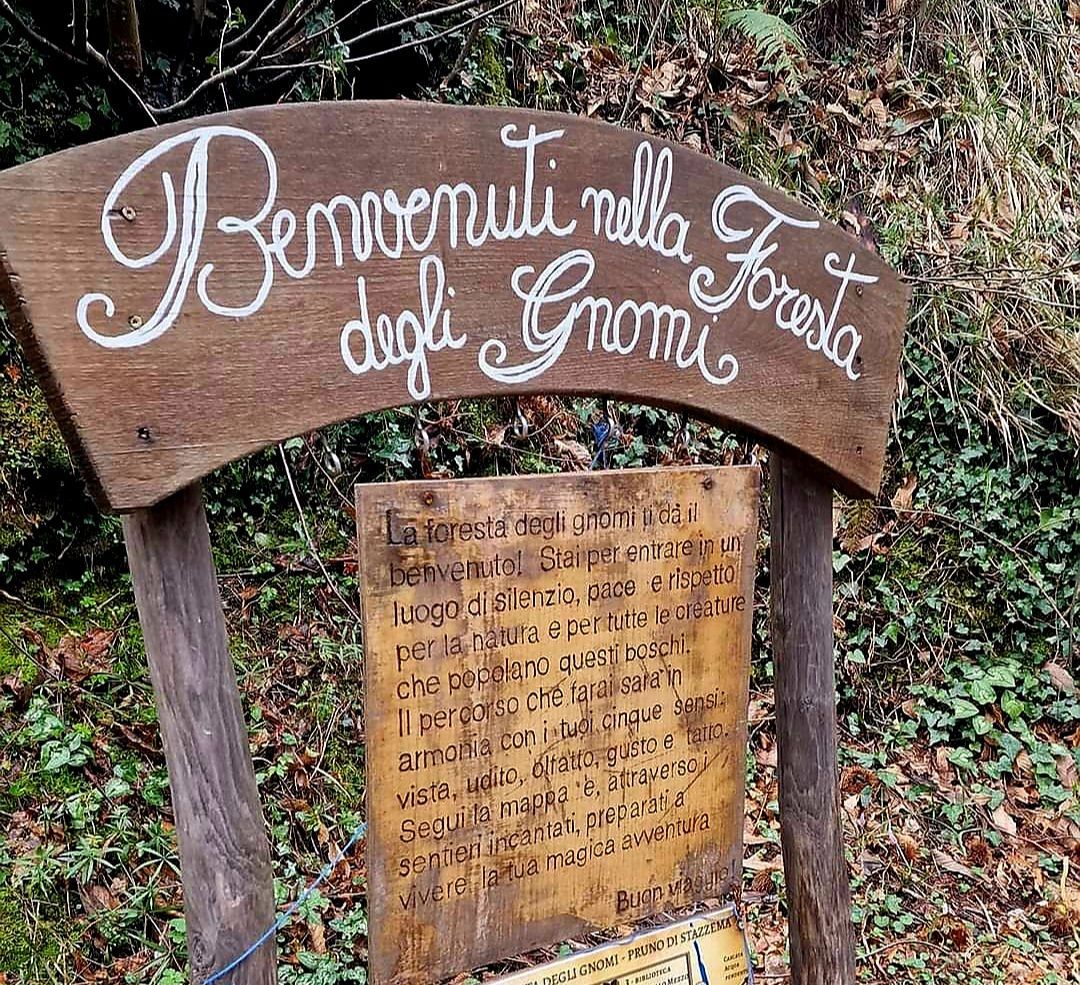 Benvenuti nella Foresta
degli Gnomi
La foresta degli gnomi ti dà il
benvenuto! Stai per entrare in un
luogo di silenzio, pace e rispetto
per la natura e per tutte le creature
che popolano questi boschi.
Il percorso che farai sarà in
armonia con i tuoi cinque sensi:
vista, udito, olfatto, gusto e tatto.
Segui la mappa e, attraverso i
sentieri incantati, preparati a
vivere la tua magica avventura
Buon viaggio
DEGLI GNOMI - PRUNO DI STAZZEMA
1 - BIBLIOTECA
CASCATA
ACQUA